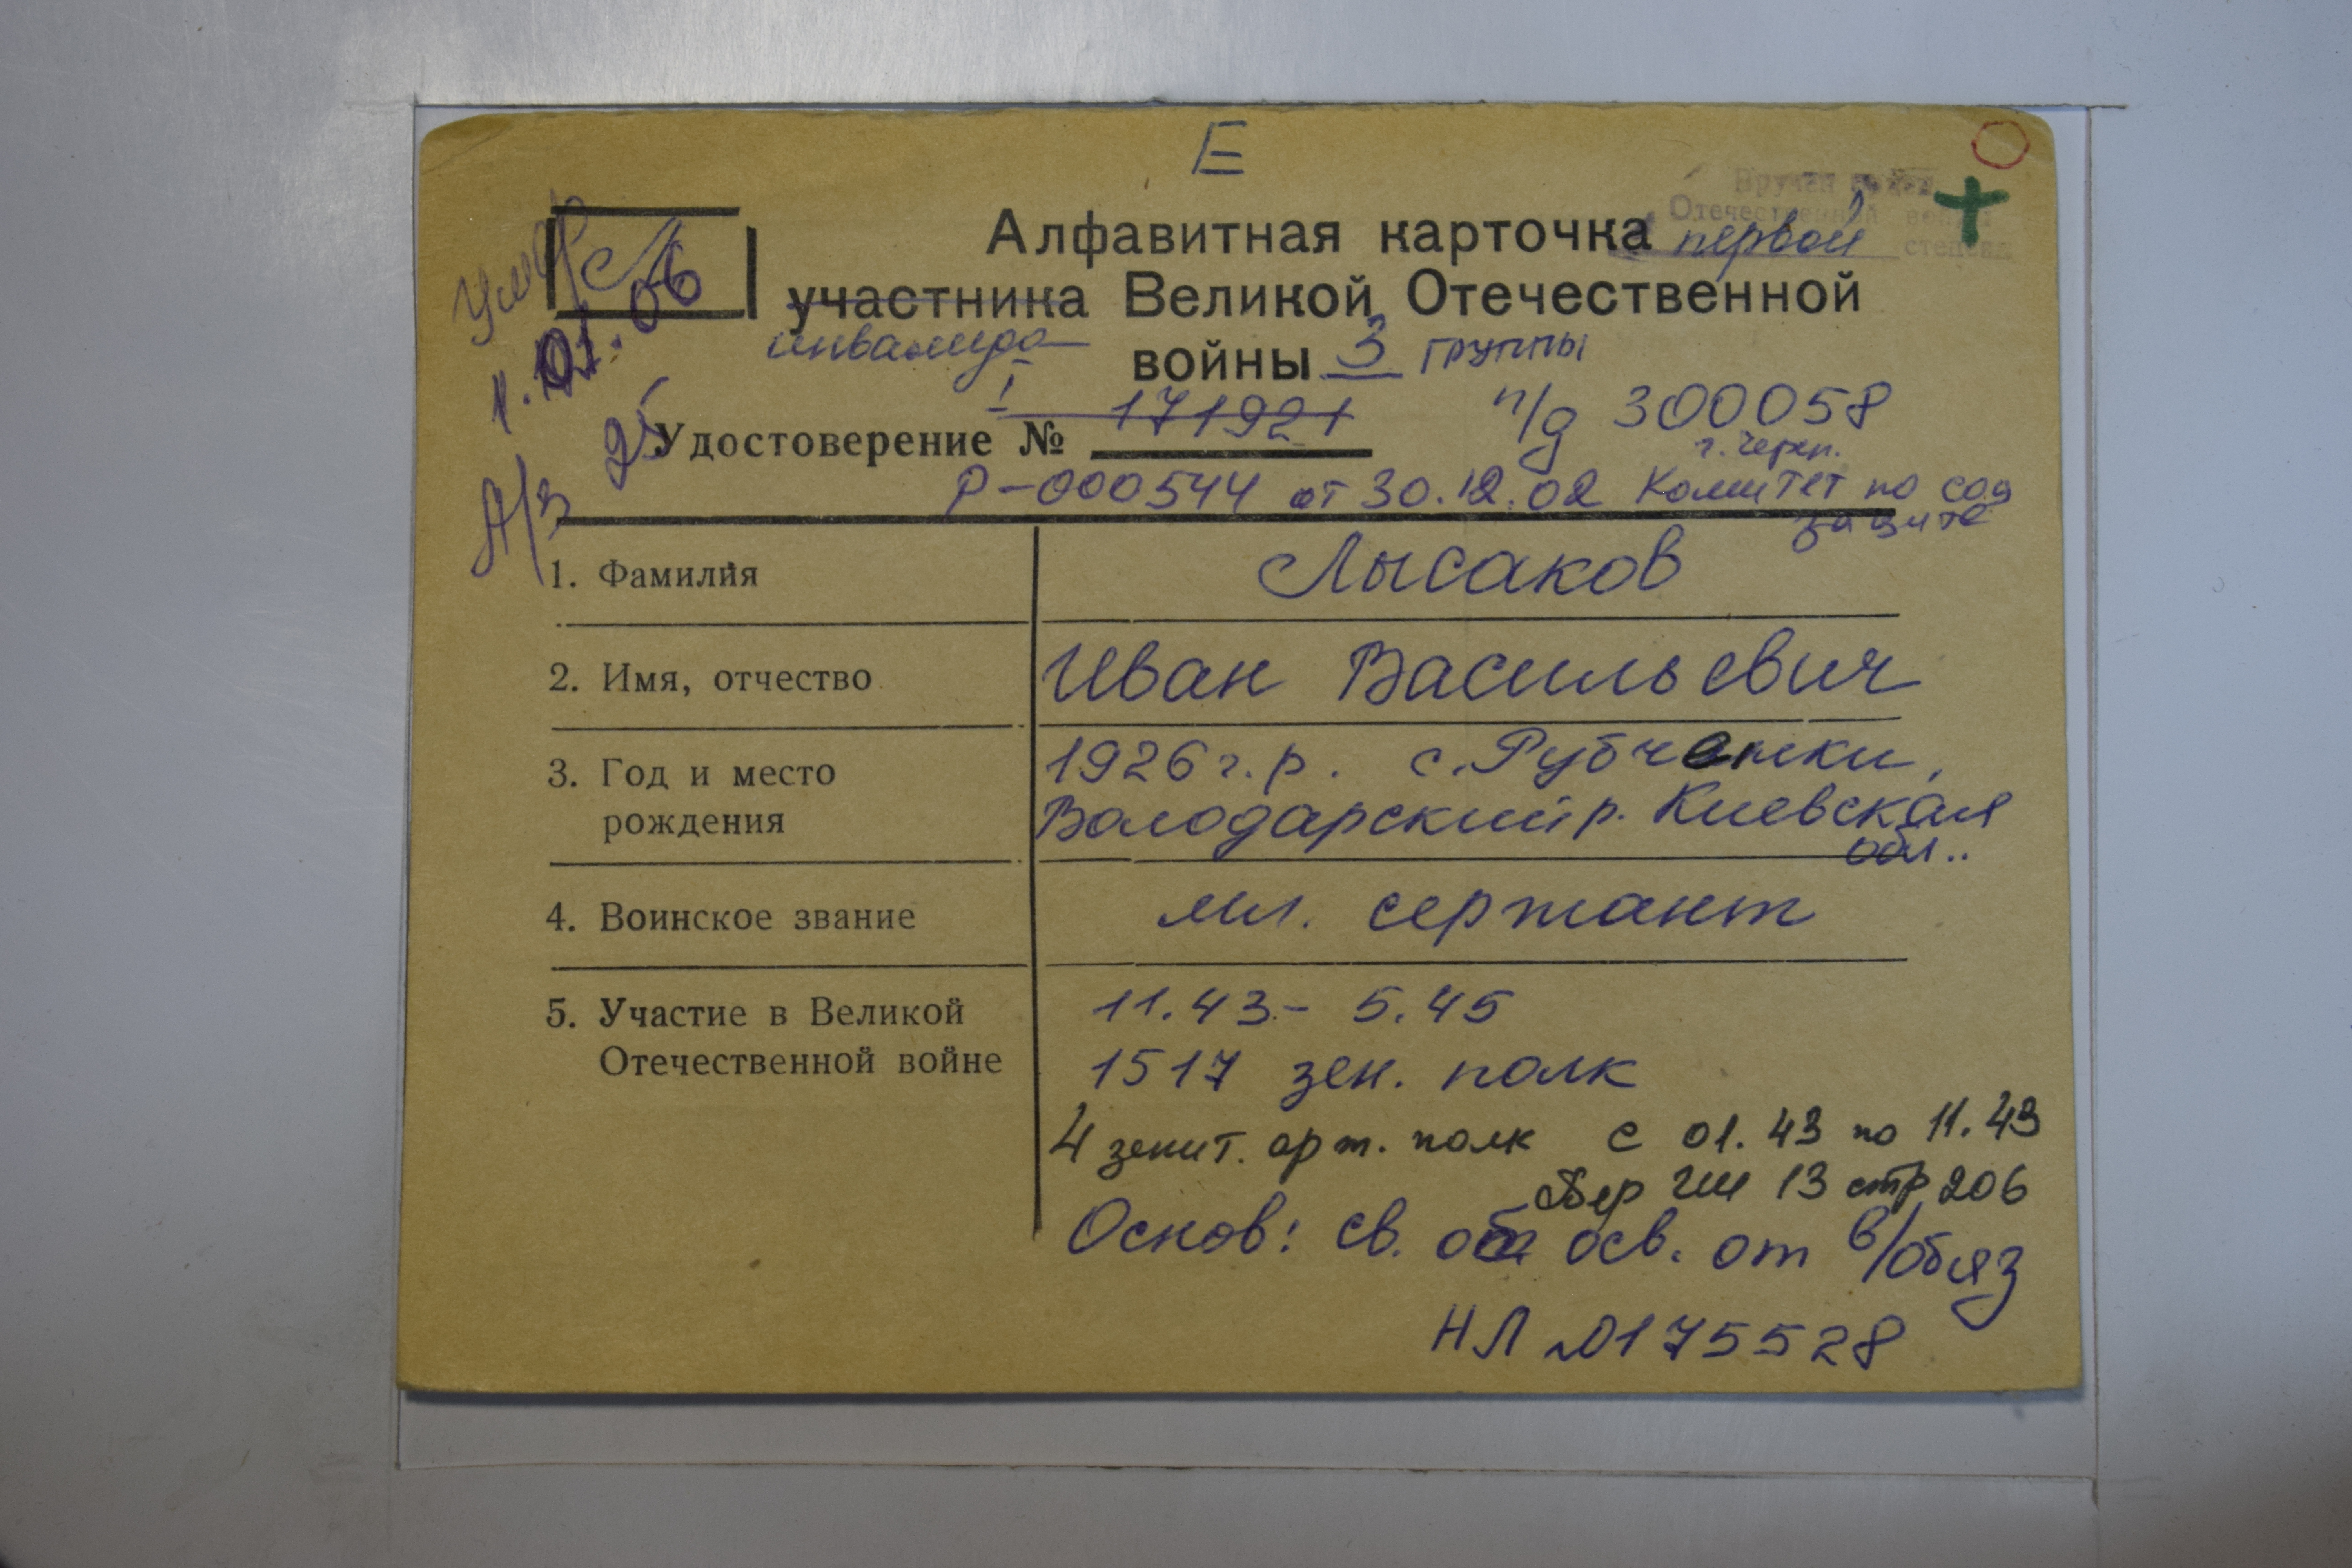 Е
Вручен орден
Отечественной войны
первой степени
Умер
1.01.06
А/з 25
Алфавитная карточка
участника Великой Отечественной
инвалида
войны 3 группы
I 171921 п/д 300058
Удостоверение №
г. Черкн.
Р-000544 от 30.12.02 Комитет по соц
защите
1. Фамилия Лысаков
2. Имя, отчество Иван Васильевич
3. Год и место 1926 г.р. с. Рубченки,
рождения Володарский р. Киевская
обл..
4. Воинское звание мл. сержант
5. Участие в Великой 11.43 - 5.45
Отечественной войне 1517 зен. полк
4 зенит. арт. полк с 01.43 по 11.43
13 стр 206
Основ: св. об осв. от в/обяз
НЛ №0175528